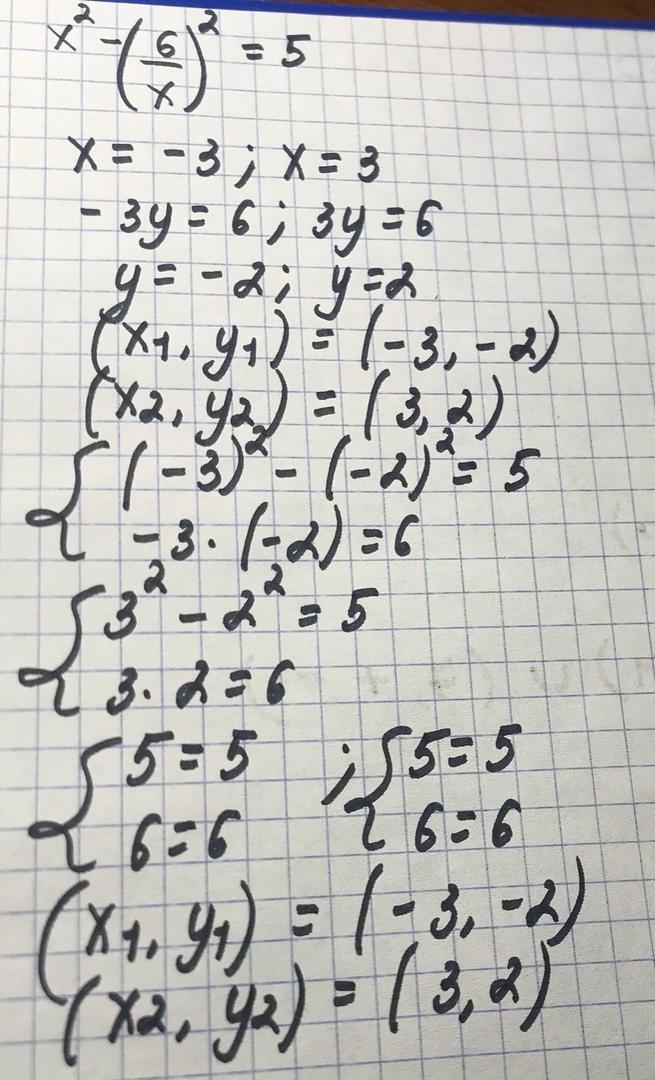 x² - (6/x)² = 5
x = -3 ; x = 3
-3y = 6 ; 3y = 6
y = -2 ; y = 2
(x1, y1) = (-3, -2)
(x2, y2) = (3, 2)
{ (-3)² - (-2)² = 5
-3 · (-2) = 6
{ 3² - 2² = 5
3 · 2 = 6
{ 5 = 5 ; { 5 = 5
6 = 6 6 = 6
(x1, y1) = (-3, -2)
(x2, y2) = (3, 2)